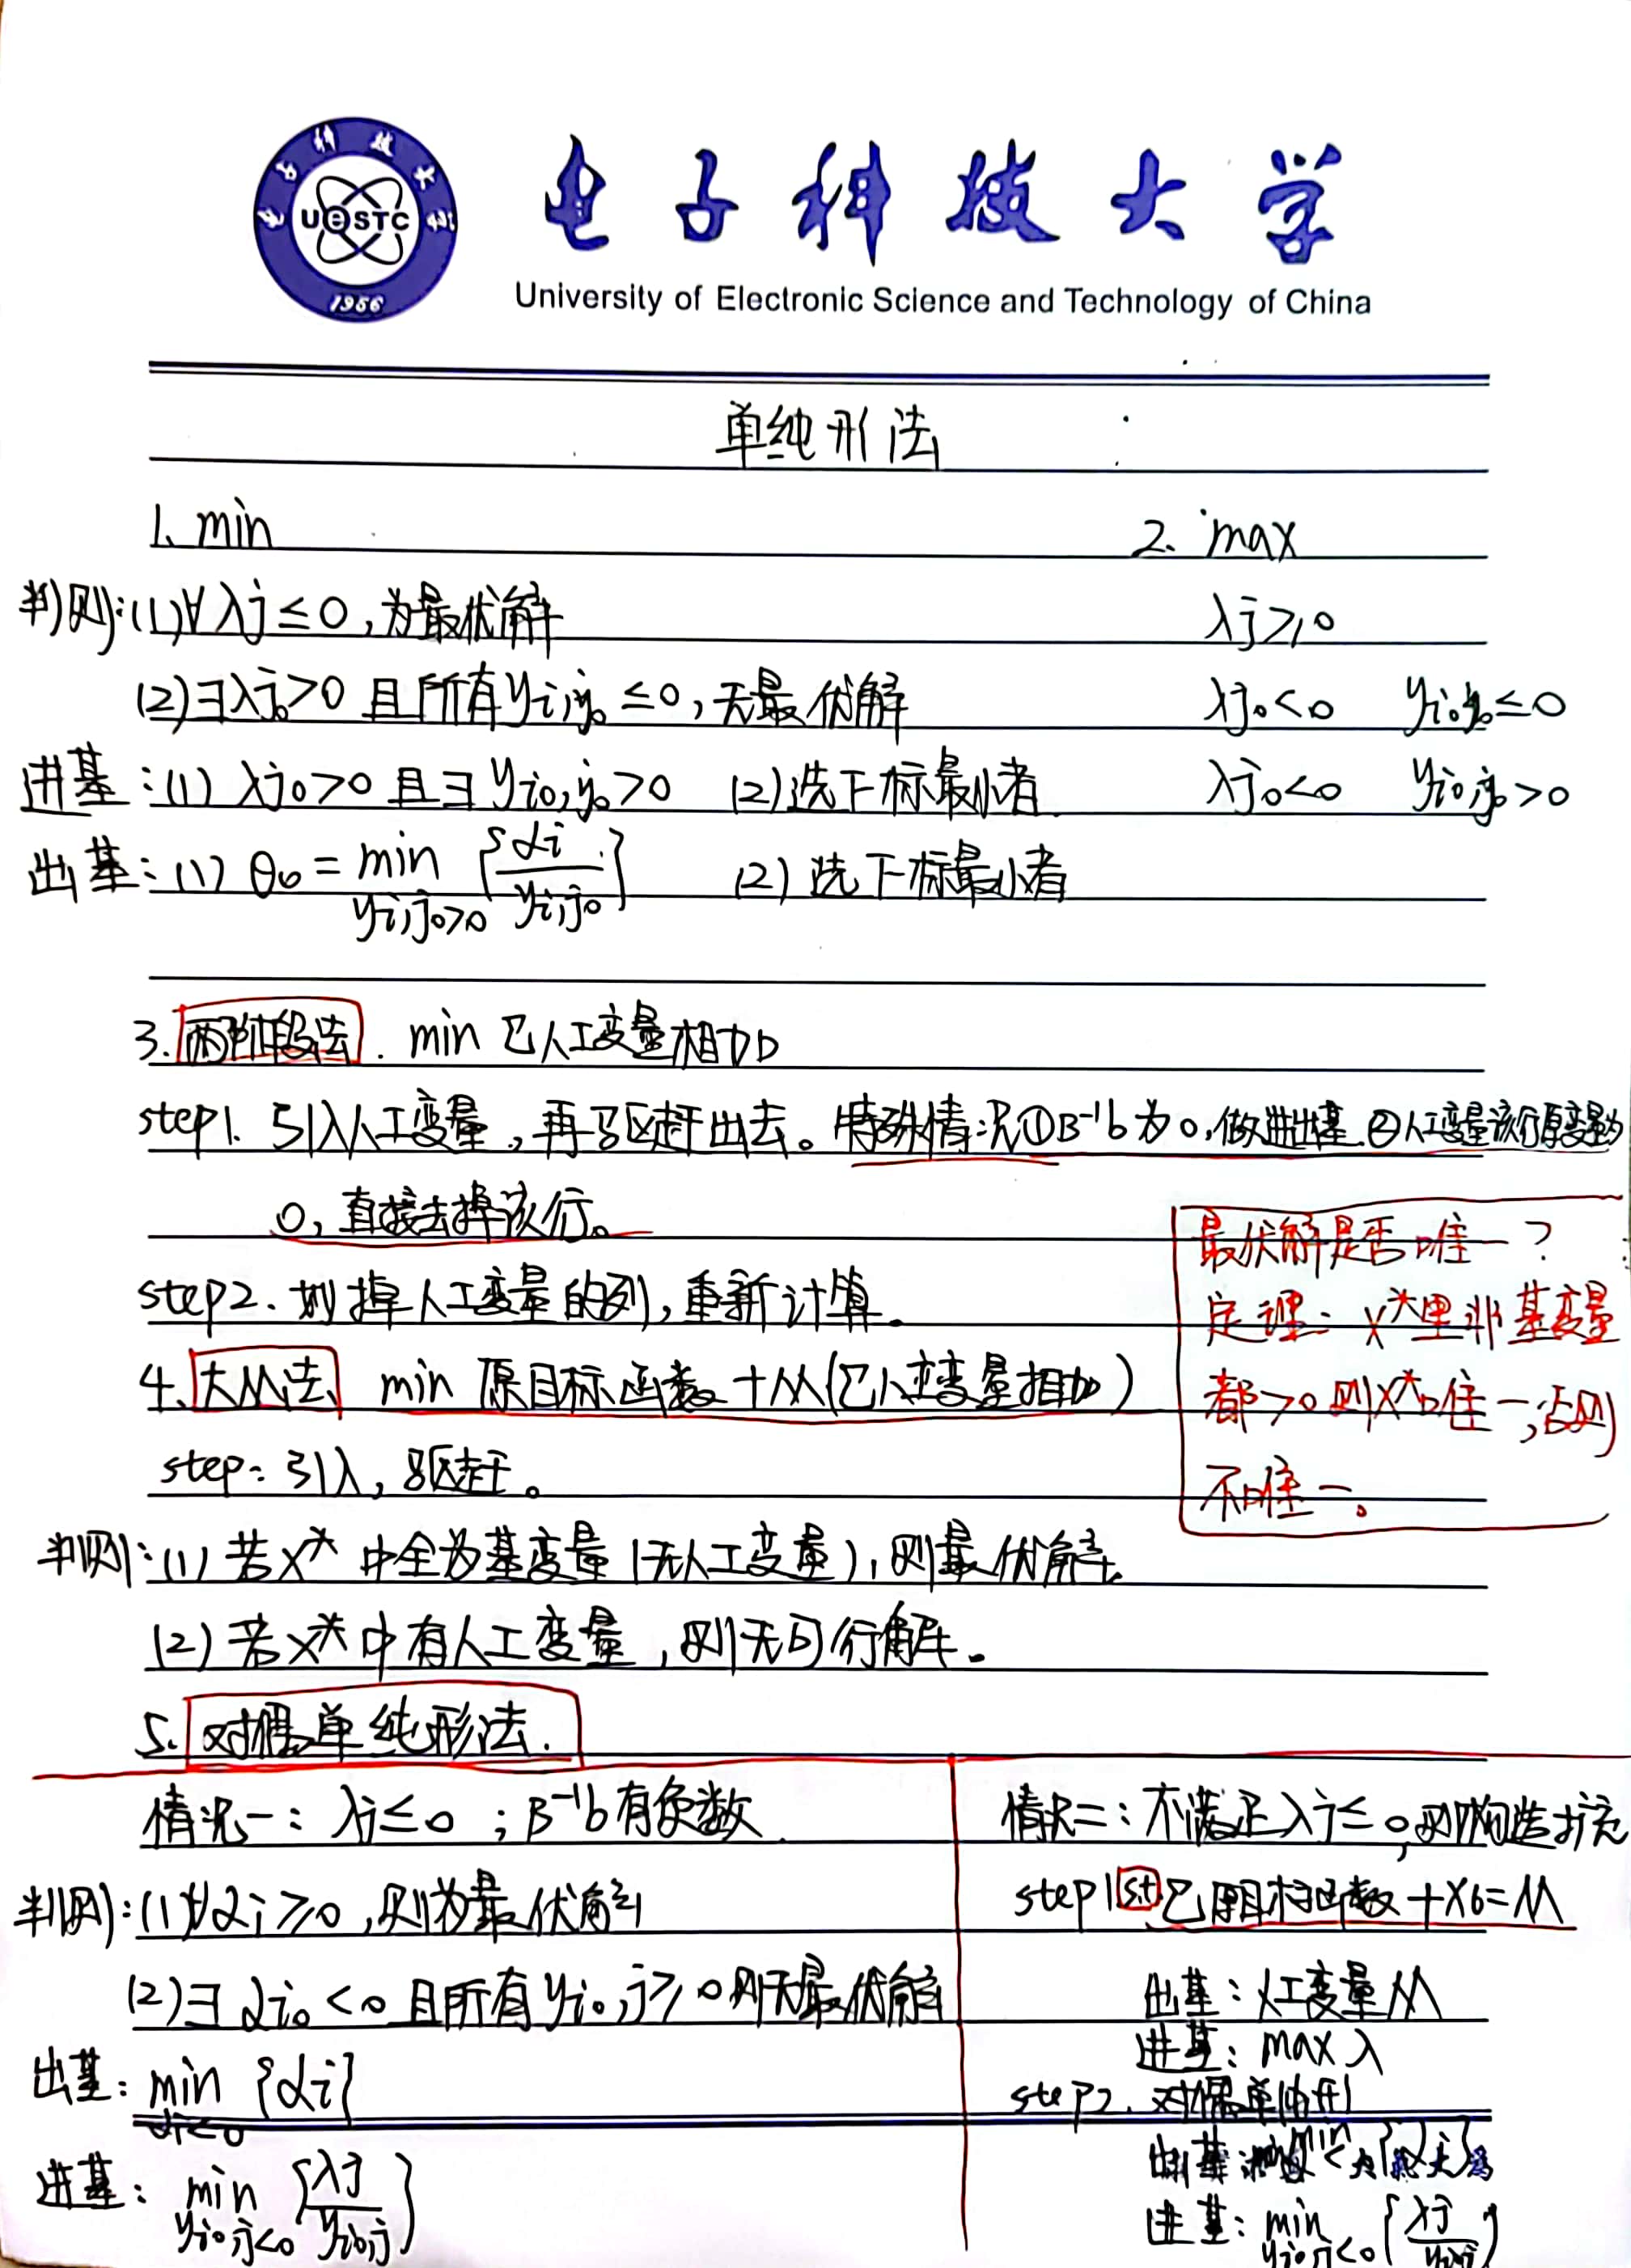 电子科技大学
UESTC
1956
电子科技大学
University of Electronic Science and Technology of China
单纯形法
1. min
2. max
判则:(1)∀λj≤0,为最优解
λj≥0
(2)∃λj₀>0 且所有yi,j₀≤0,无最优解
λj₀<0 yi₀j₀≤0
进基:(1) λj₀>0 且∃ yi₀,j₀>0 (2)选下标最小者
λj₀<0 yi₀,j₀>0
出基:(1) θ₀ = min {αi/yi,j₀} (2) 选下标最小者
yi,j₀>0
3. 两阶段法. min Σ人工变量相加
step1. 引入人工变量,再驱赶出去。特殊情况①B⁻¹b为0,做进出基.②人工变量该行原变量为
0,直接去掉该行。
step2. 划掉人工变量的列,重新计算.
4. 大M法 min 原目标函数+M(Σ人工变量相加)
step: 引入,驱赶。
最优解是否唯一?
定理: X*里非基变量
都>0 则X*唯一,否则
不唯一。
判则:(1) 若X* 中全为基变量(无人工变量),则最优解.
(2) 若X*中有人工变量,则无可行解.
5. 对偶单纯形法.
情况一: λj≤0 ; B⁻¹b有负数.
判则:(1)∀αi≥0,则为最优解
(2)∃ αi₀<0 且所有yi₀,j≥0则无最优解
出基: min {αi}
αi<0
进基: min {λj/yi₀,j}
yi₀,j<0
情况二: 不满足λj≤0,则构造扩充
step1 s.t Σ原目标函数+X6=M
出基: 人工变量M
进基: max λ
step2. 对偶单纯形
出基: min {αi}
进基: min {λj/yi₀j}
yi₀,j<0